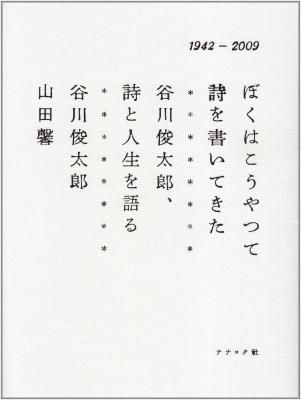 1942－2009
ぼくはこうやって
詩を書いてきた
＊＊＊＊＊＊＊＊
谷川俊太郎、
詩と人生を語る
＊＊＊＊＊＊＊＊
谷川俊太郎
山田馨
ナナロク社